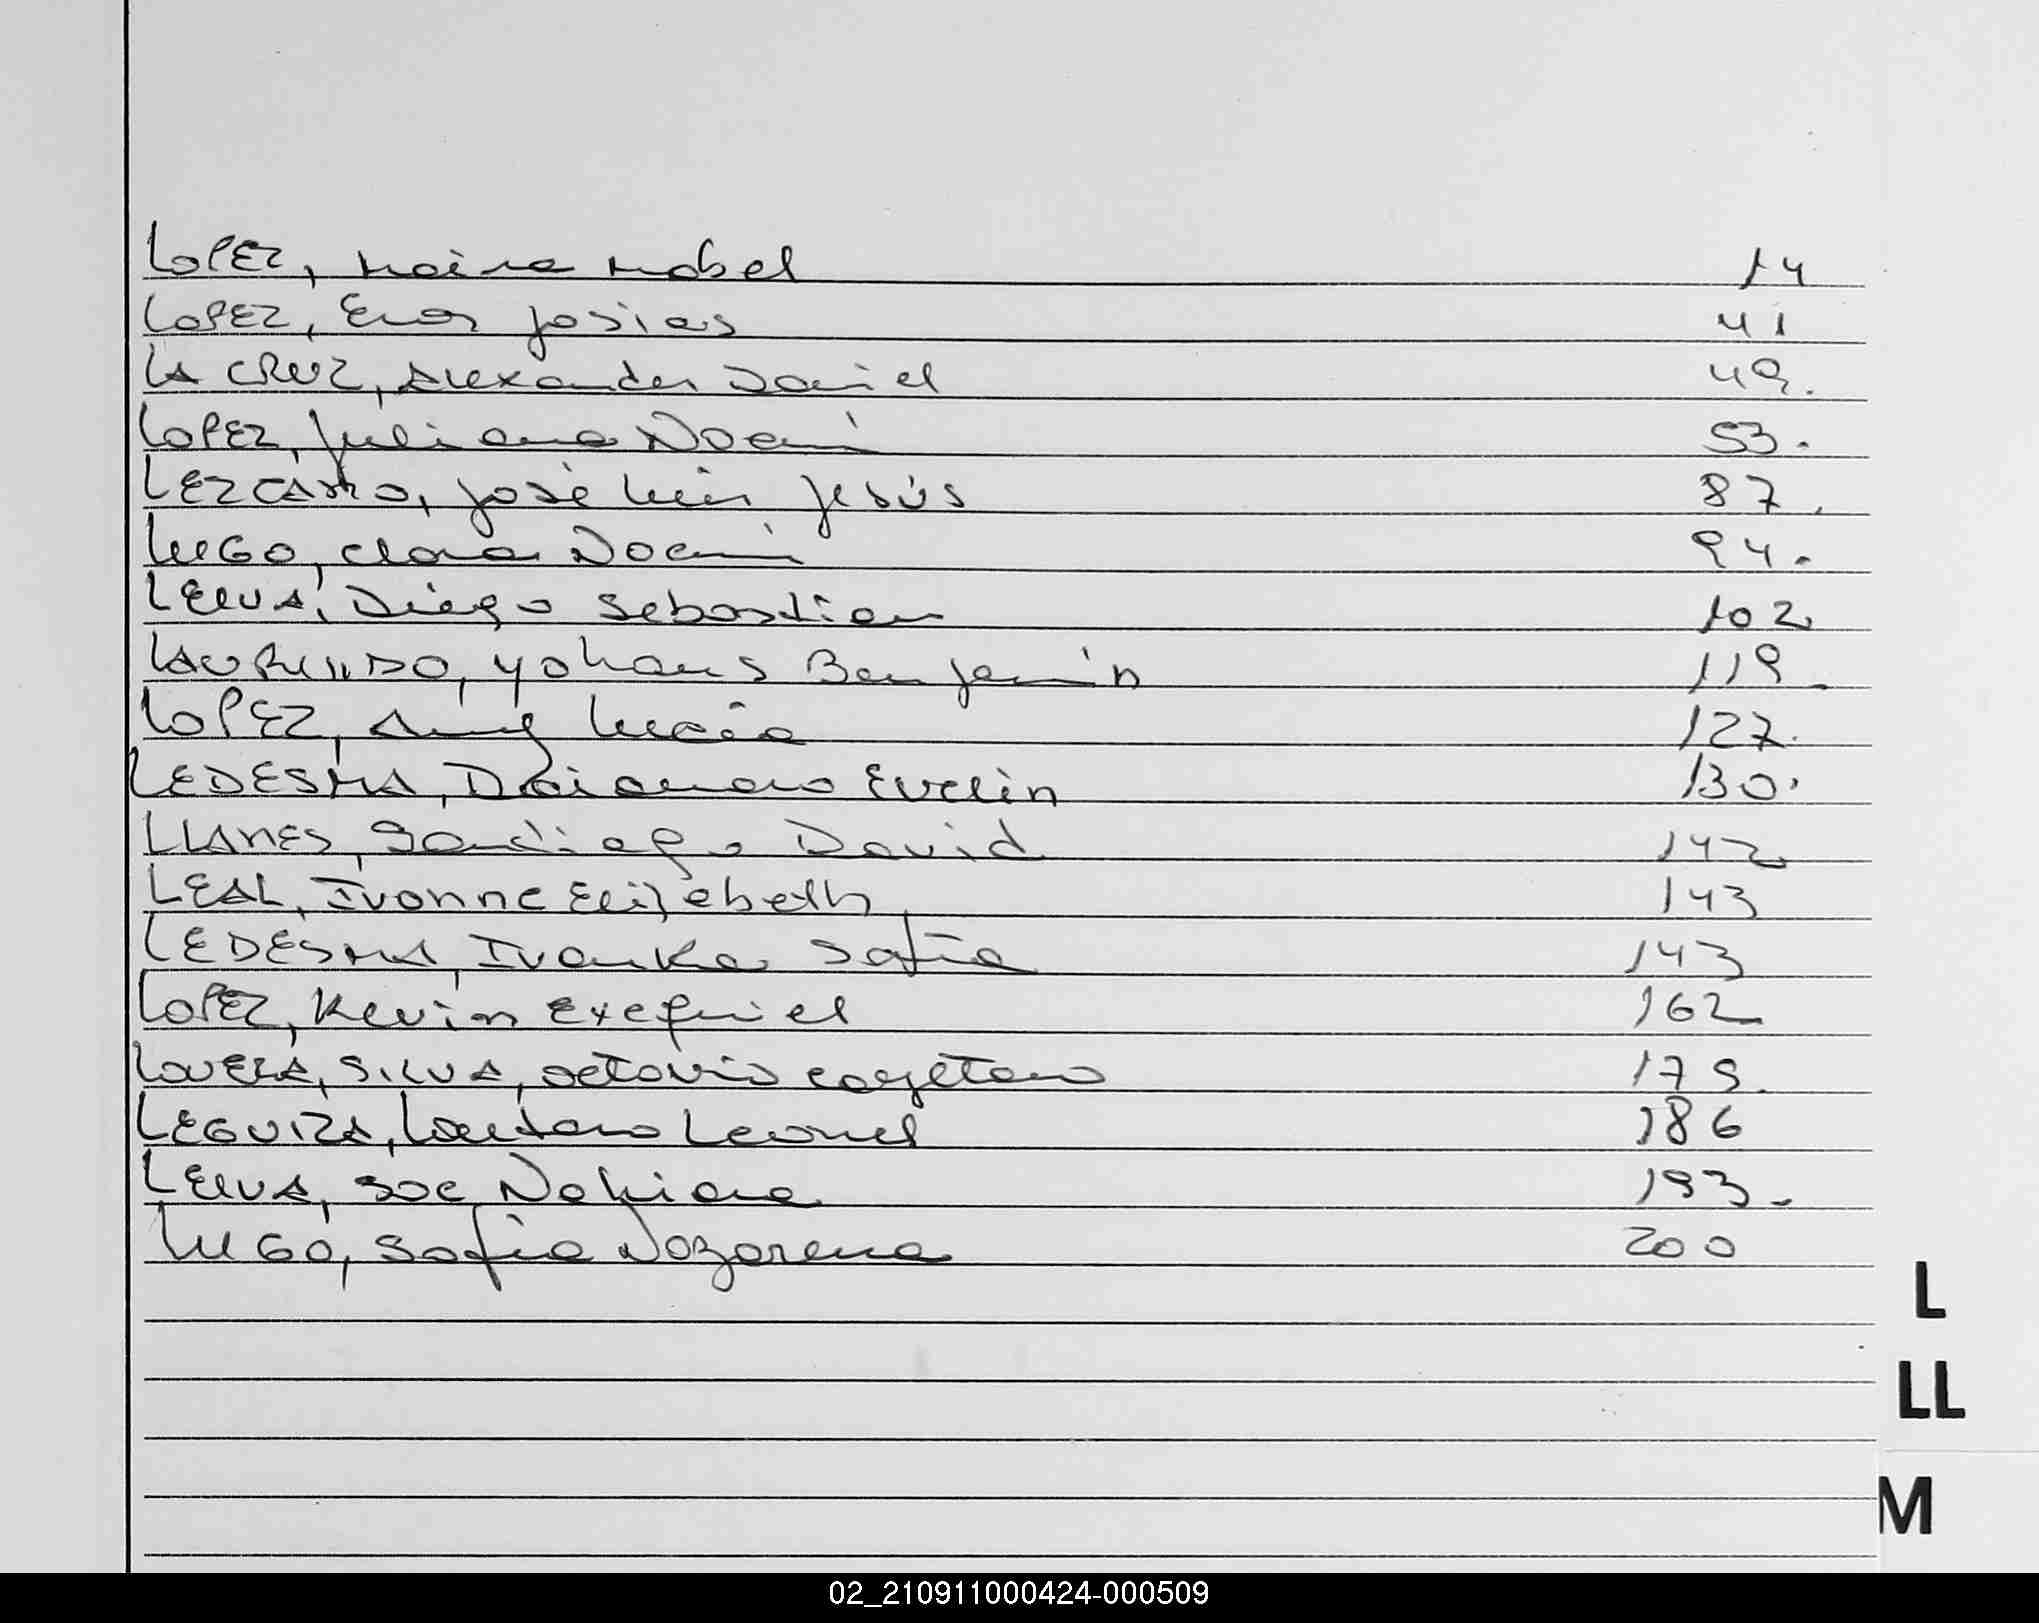 LOPEZ, Maira Mabel 14
LOPEZ, Eros Josias 41
LA CRUZ, Alexander Daniel 49.
LOPEZ, Juliana Noemí 53.
LEZCANO, José Luis Jesús 87.
LUGO, Clara Noemí 94.
LEIVA, Diego Sebastian 102.
LAURINDO, Yohans Benjamín 119.
LOPEZ, Amy Lucía 127.
LEDESMA, Daianara Evelin 130.
LLANES, Santiago David 142
LEAL, Ivonne Elizabeth 143
LEDESMA, Ivanka Sofía 143
LOPEZ, Kevin Exequiel 162
LOVERA, SILVA, Octavio Cayetano 179.
LEGUIZA, Lautaro Leonel 186
LEIVA, Zoe Nahiara 193.
LUGO, Sofía Nazarena 200
L
LL
M
02_210911000424-000509